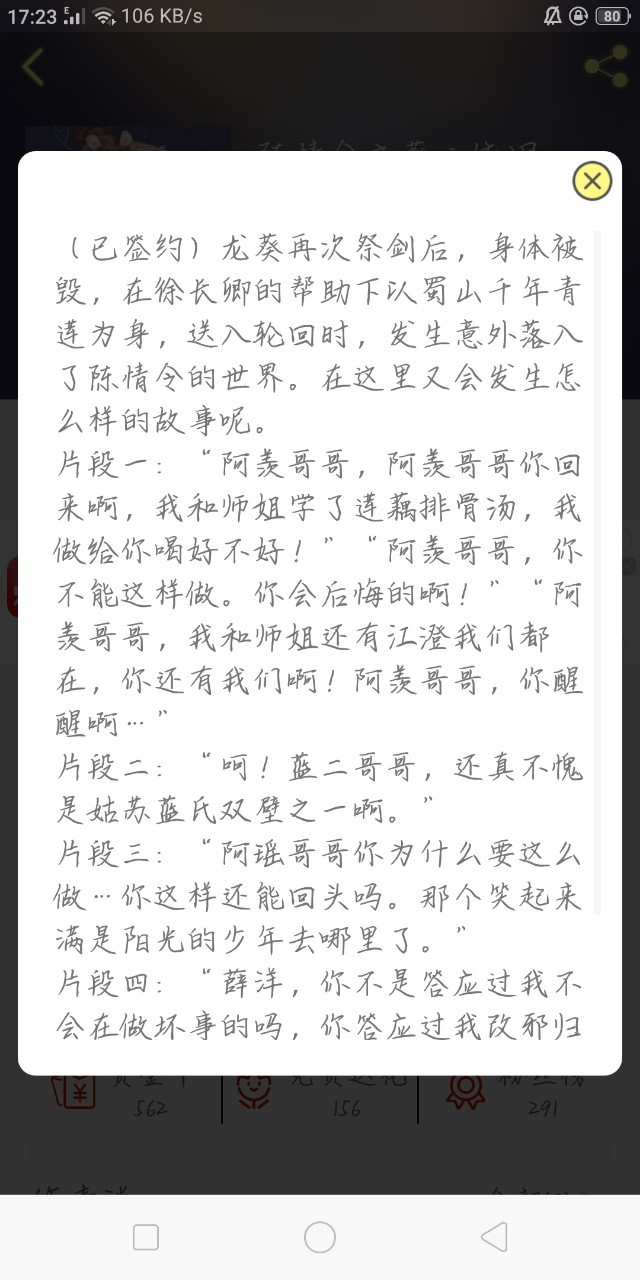 17:23
106 KB/s
80
（已签约）龙葵再次祭剑后，身体被
毁，在徐长卿的帮助下以蜀山千年青
莲为身，送入轮回时，发生意外落入
了陈情令的世界。在这里又会发生怎
么样的故事呢。
片段一：“阿羡哥哥，阿羡哥哥你回
来啊，我和师姐学了莲藕排骨汤，我
做给你喝好不好！”“阿羡哥哥，你
不能这样做。你会后悔的啊！”“阿
羡哥哥，我和师姐还有江澄我们都
在，你还有我们啊！阿羡哥哥，你醒
醒啊…”
片段二：“呵！蓝二哥哥，还真不愧
是姑苏蓝氏双壁之一啊。”
片段三：“阿瑶哥哥你为什么要这么
做…你这样还能回头吗。那个笑起来
满是阳光的少年去哪里了。”
片段四：“薛洋，你不是答应过我不
会在做坏事的吗，你答应过我改邪归
562
156
291